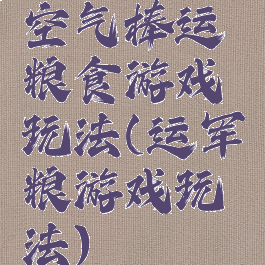 空气棒运
粮食游戏
玩法(运军
粮游戏玩
法)